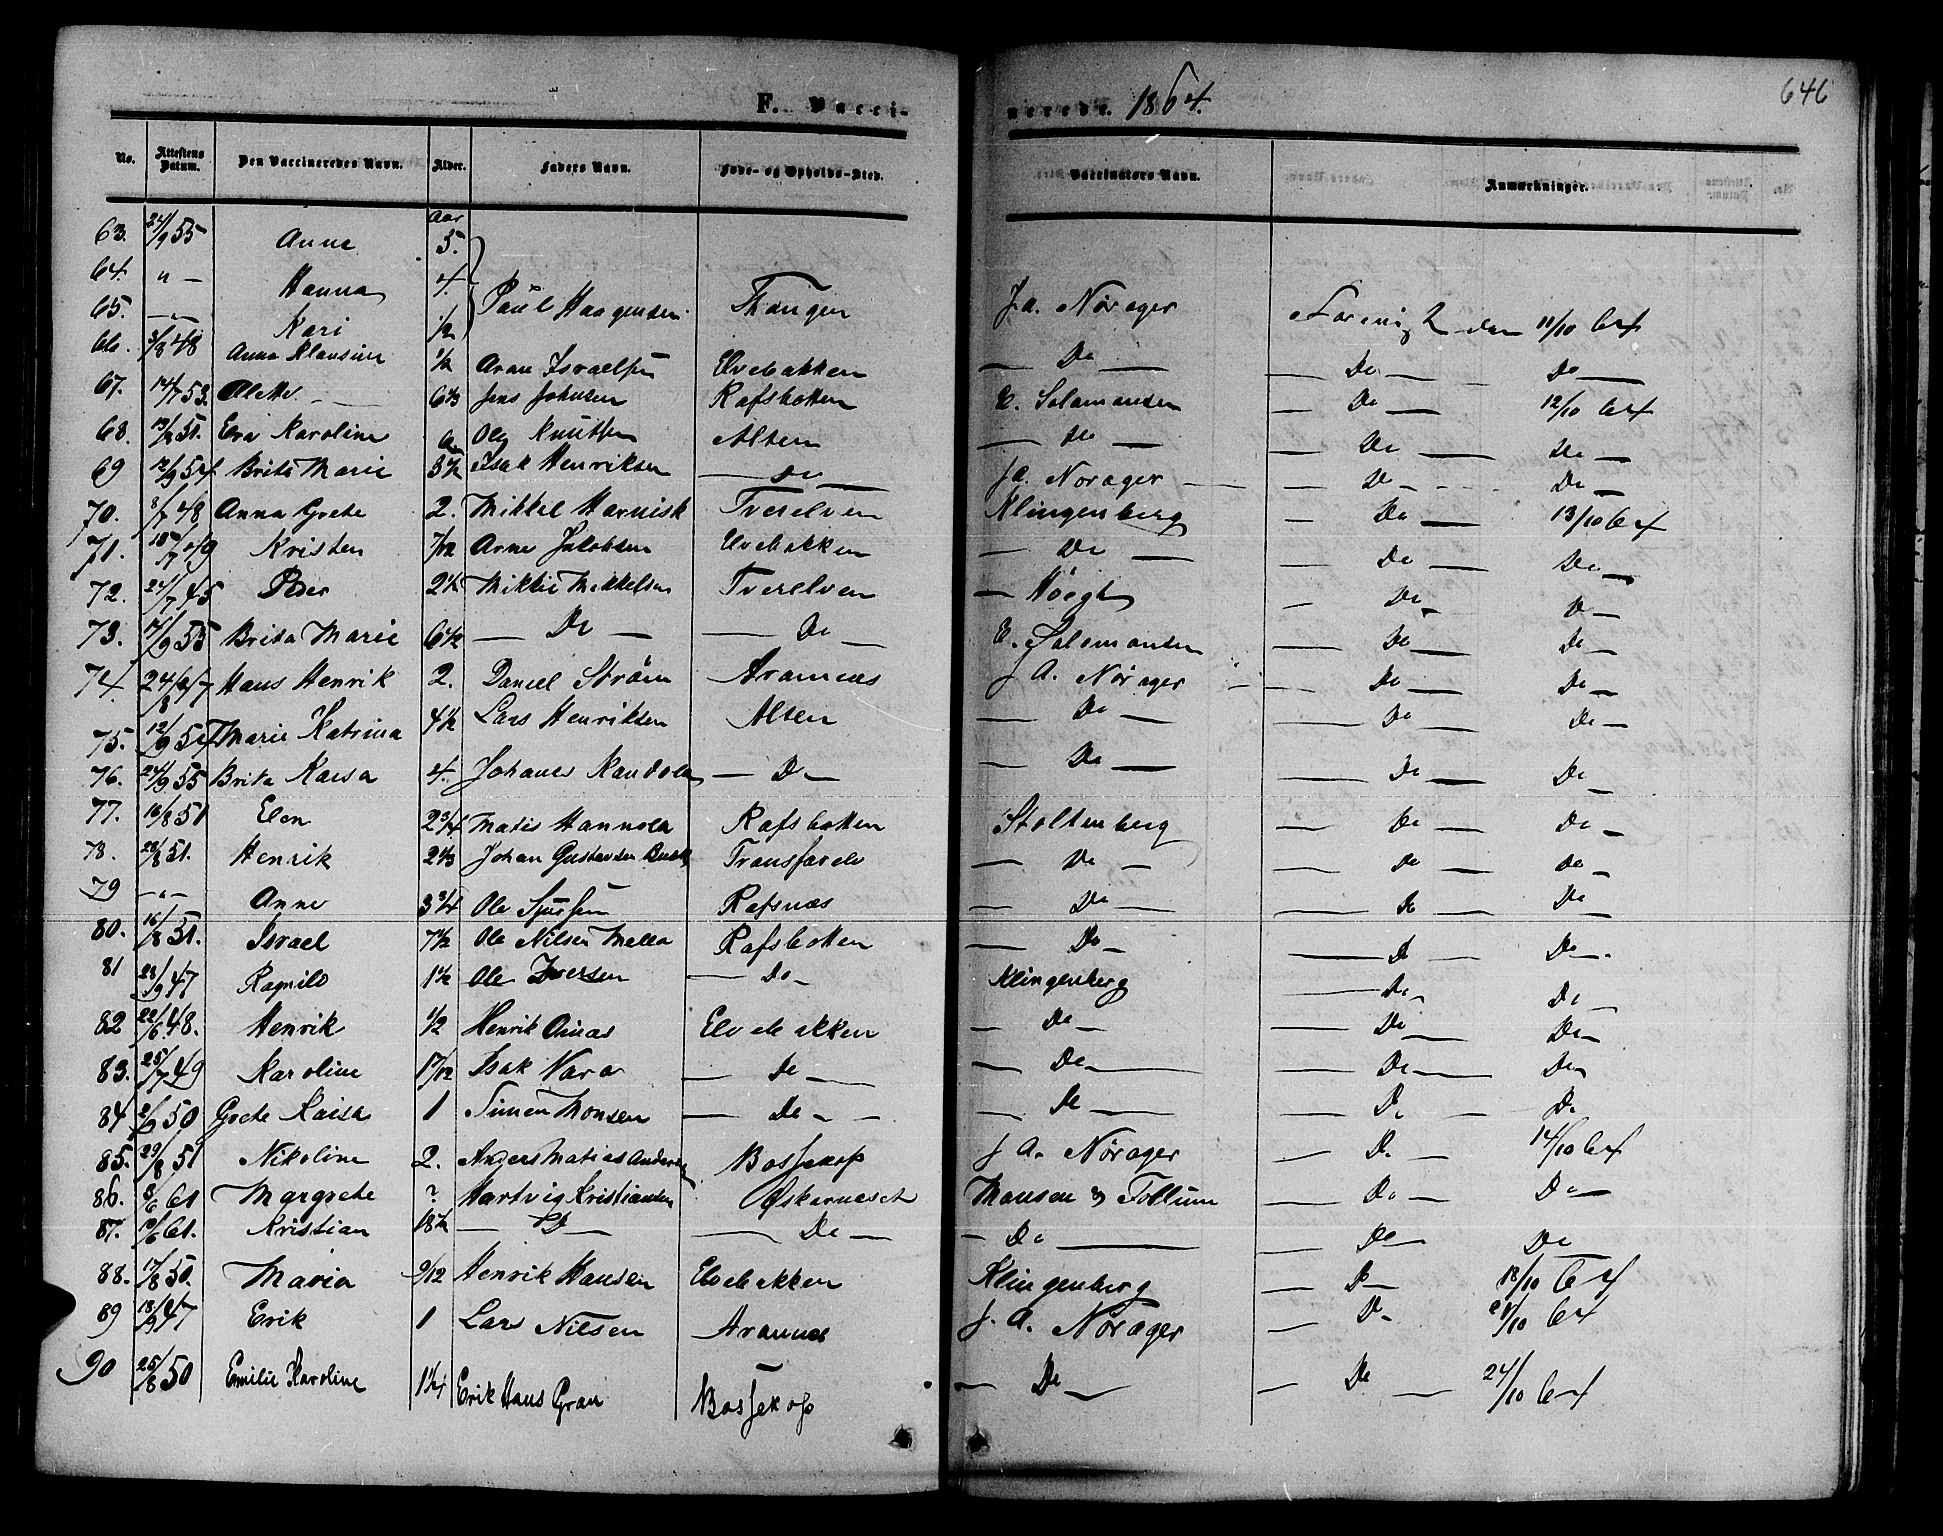 646
F. Vaccinerede. 1864.
No. | Attestens Datum. | Den Vaccineredes Navn. | Alder. | Faders Navn. | Føde- og Opholds-Sted. | Vaccinators Navn. | Anmærkninger.
63. | 24/9 55 | Anne | Aar 5.
64. | " — | Hanna | 4. | Paul Haagensen | Thangen | J. A. Nørager | Forevist den 11/10 64
65. | — " — | Kari | 1/2
66. | 3/8 48 | Anna Klausine | 1/2 | Aron Israelsen | Elvebakken | — Do — | — Do — | Do —
67. | 14/7 53. | Alette — | 6 1/3 | Jens Johnsen | Rafsbotten | E. Salamonsen | — Do — | 12/10 64
68. | 51. | Eva Karoline | 6 | Ole Knutsen | Alten | — Do — | — Do — | Do —
69 | 12/9 54 | Brita Marie | 3 1/2 | Isak Henriksen | — Do — | J. A. Norager — | — Do — | Do —
70. | 8/7 48 | Anna Grete | 2. | Mikkel Harnisk | Tverelven | Klingenberg | — Do — | 13/10 64
71. | Kristen | 7/12 | Arne Jakobsen | Elvebakken | — Do — | — Do — | Do —
72. | 24/7 45 | Peder | 2 1/2 | Mikkel Mikkelsen | Tverelven | — Høegh | — Do — | Do —
73. | 17/9 55 | Brita Marie | 6 1/2 | — Do — | — Do — | E. Salomonsen | — Do — | Do —
74. | 24/8 47 | Hans Henrik | 2. | Daniel Strøm | Aronnæs | J. A. Nørager — | — Do — | Do —
75. | 12/9 54 | Marie Katrina | 4 1/2 | Lars Henriksen | Alten | — Do — | — Do — | Do —
76. | 24/9 55 | Brita Kaisa | 4. | Johanes | — Do — | — Do — | — Do — | Do —
77. | 16/8 51 | Elen | 2 3/4 | Matis Hannola | Rafsbotten | Stoltenberg | — Do — | Do —
78. | 28/8 51. | Henrik | 2 1/3 | Johan Gustavsen | Transfarelv | — Do — | — Do — | Do —
79 | — " — | Anne | 3 3/4 | Ole | Rafsnæs | — Do — | — Do — | Do —
80. | 16/8 51. | Israel | 7 1/2 | Ole Nilsen | Rafsbotten | — Do — | — Do — | Do —
81 | 28/9 47 | Ragnild | 1 1/2 | Ole Iversen | — Do — | Klingenberg | — Do — | Do —
82 | 22/6 48. | Henrik | 1/2 | Henrik | Elvebakken | — Do — | — Do — | Do —
83. | 25/7 49 | Karoline | 17/12 | Isak Nara | — Do — | — Do — | — Do — | Do —
84 | 50 | Grete Kaisa | 1 | Simen Monsen | — Do — | — Do — | — Do — | Do
85. | 29/8 51 | Nikoline | 2. | Anders Matias Andersen | Bossekop | J. A. Nørager | — Do — | 14/10 64
86. | 8/6 61 | Margrete | ? | Hartvig Kristiansen | Øskarnæset | Hansen & Follum | — Do — | Do —
87. | 10/6 61. | Kristian | 18 1/2 | — Do — | — Do — | — Do — | — Do — | Do
88. | 17/8 50. | Maria | 9/12 | Henrik Hansen | Elvebakken | Klingenberg | — Do — | 18/10 64
89 | 18/9 47 | Erik | 1 | Lars Nilsen | Aronnæs | J. A. Norager | — Do — | 64
90 | 25/8 50 | Emilie Karoline | 1 1/4 | Erik Hans Gran | Bossekop | — Do — | — Do — | 24/10 64